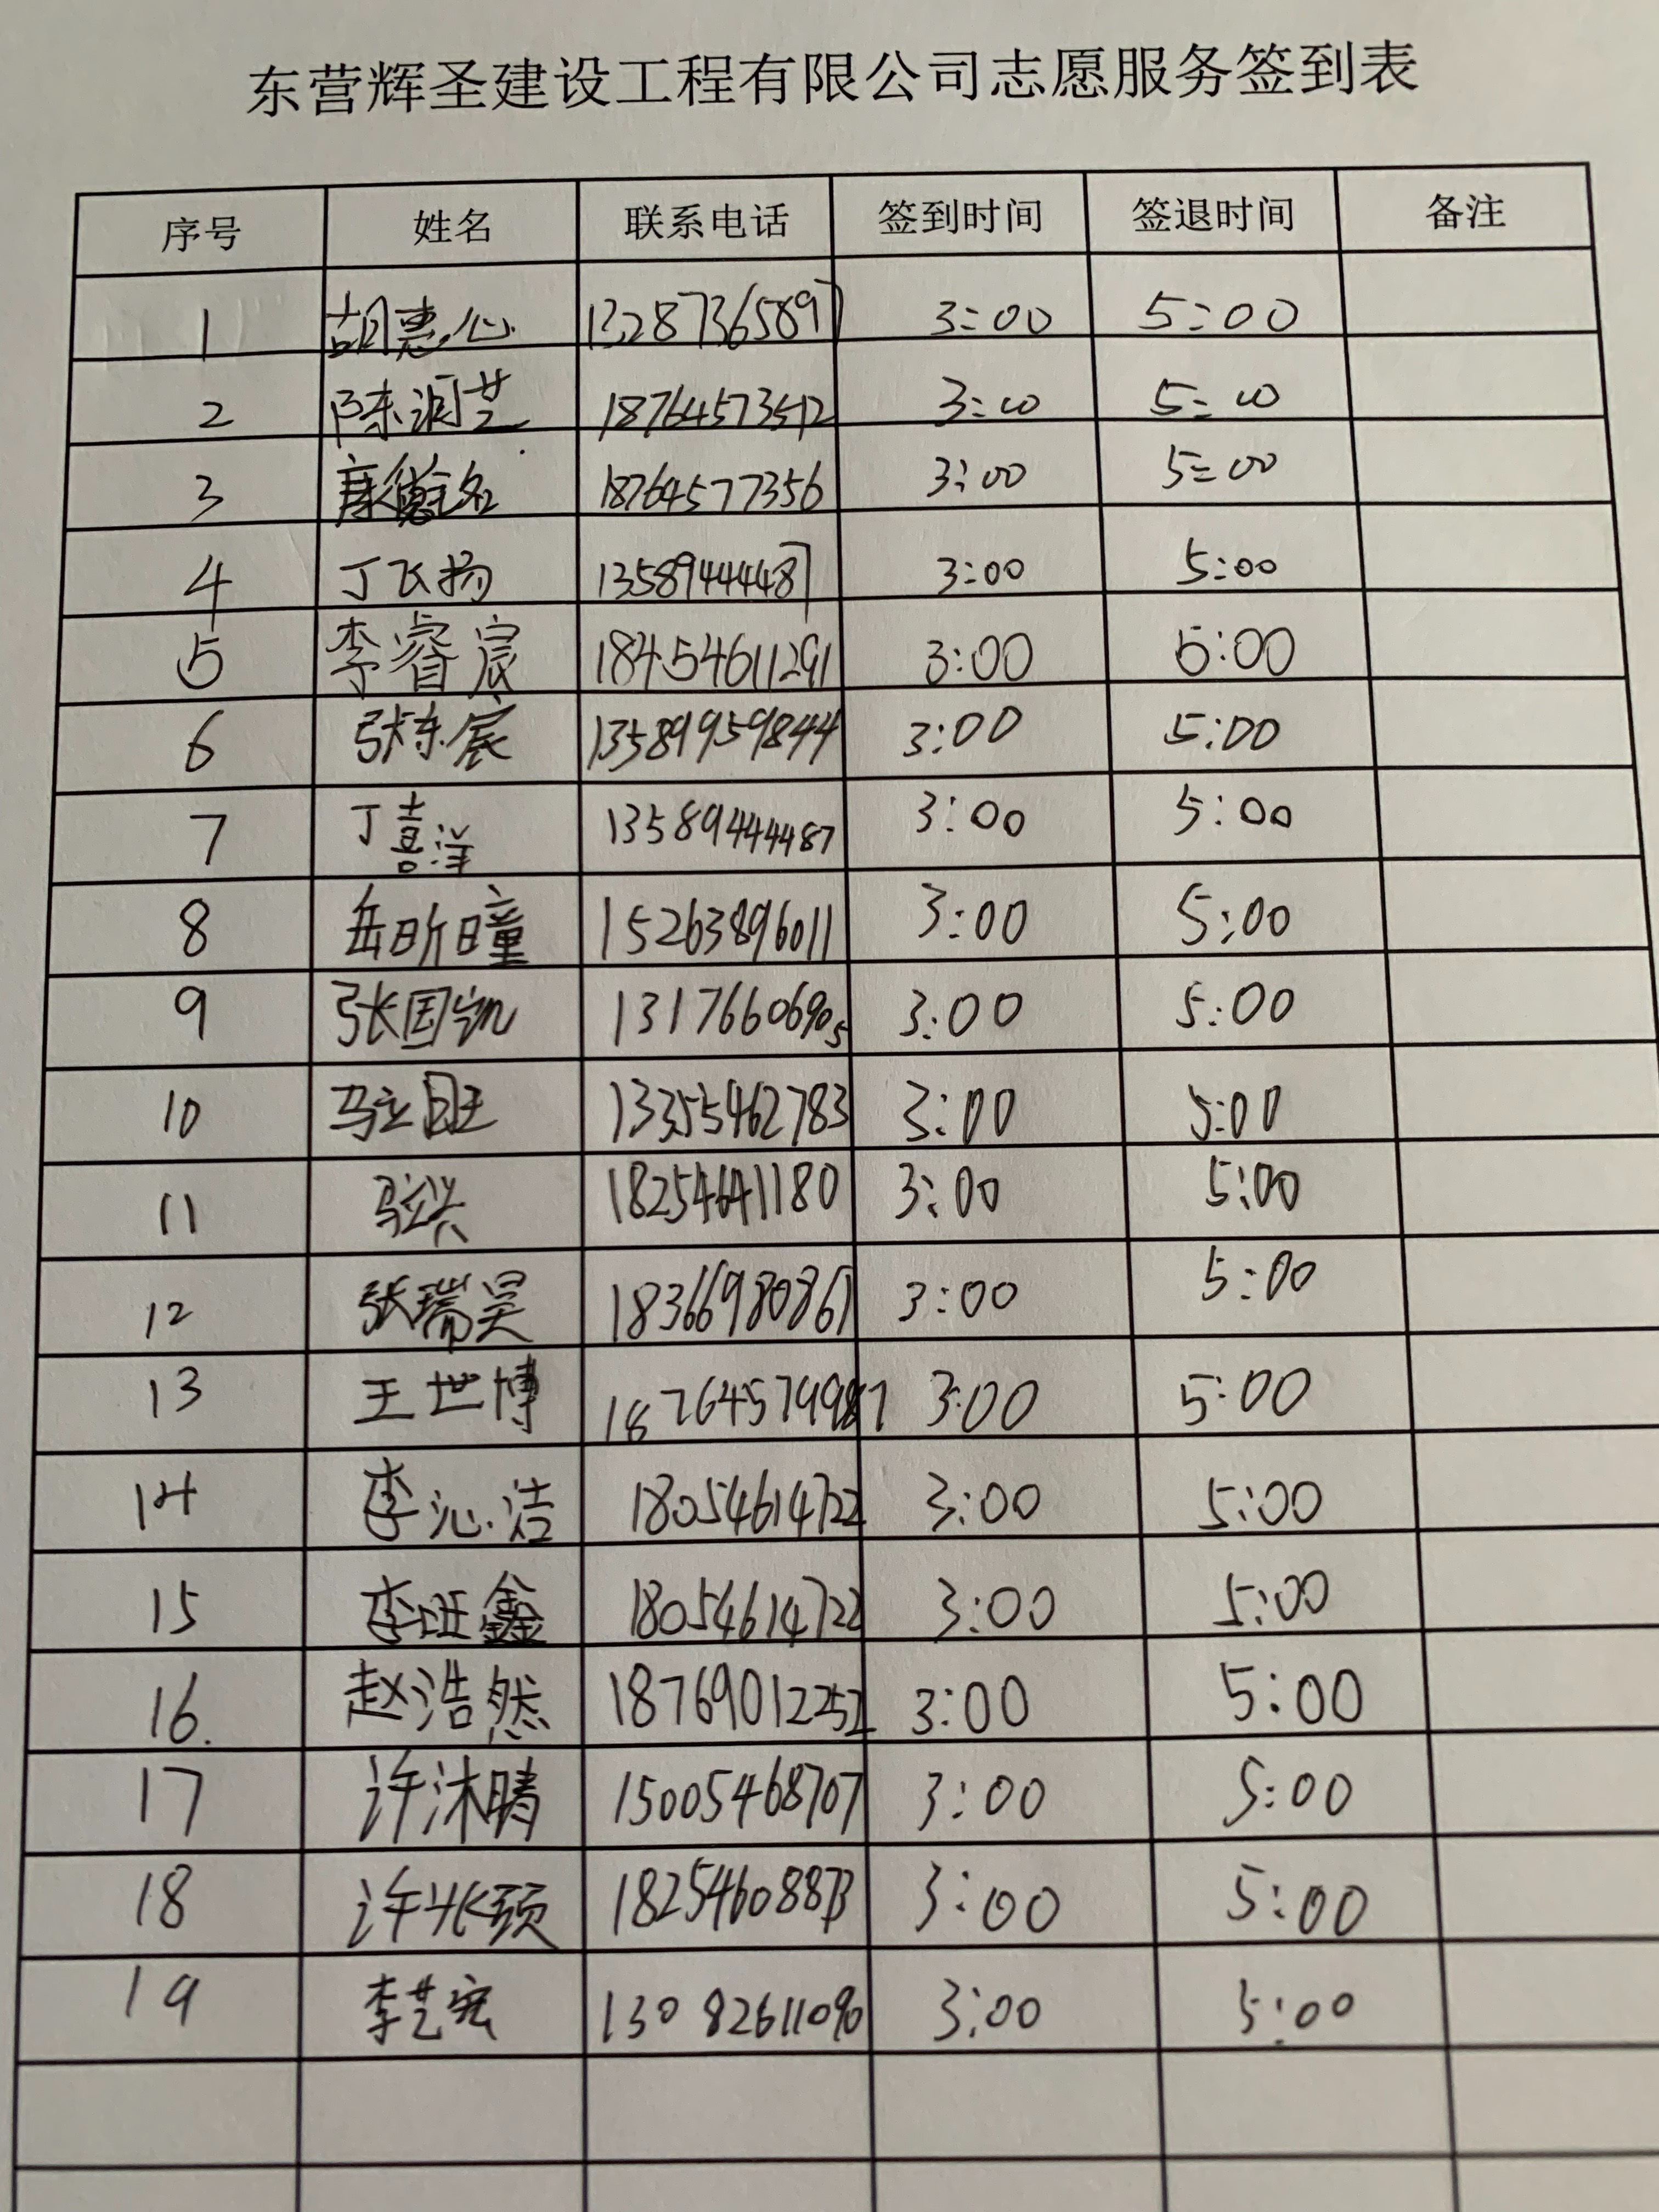 东营辉圣建设工程有限公司志愿服务签到表
序号 姓名 联系电话 签到时间 签退时间 备注
1 胡惠心 13287365897 3:00 5:00
2 陈润芝 18764573512 3:00 5:00
3 18764577356 3:00 5:00
4 丁飞扬 13589444487 3:00 5:00
5 李睿宸 18454611291 3:00 5:00
6 张宸 13589959844 3:00 5:00
7 丁喜洋 13589444487 3:00 5:00
8 岳昕曈 15263896011 3:00 5:00
9 张国凯 13176606905 3:00 5:00
10 马立旺 13355462783 3:00 5:00
11 马立兴 18254641180 3:00 5:00
12 张瑞昊 18366980867 3:00 5:00
13 王世博 3:00 5:00
14 李沁洁 18054614722 3:00 5:00
15 李旺鑫 18054614722 3:00 5:00
16. 赵浩然 18769012252 3:00 5:00
17 许沐晴 15005468707 3:00 5:00
18 许兆颐 18254608873 3:00 5:00
19 李艺宏 13082611090 3:00 5:00